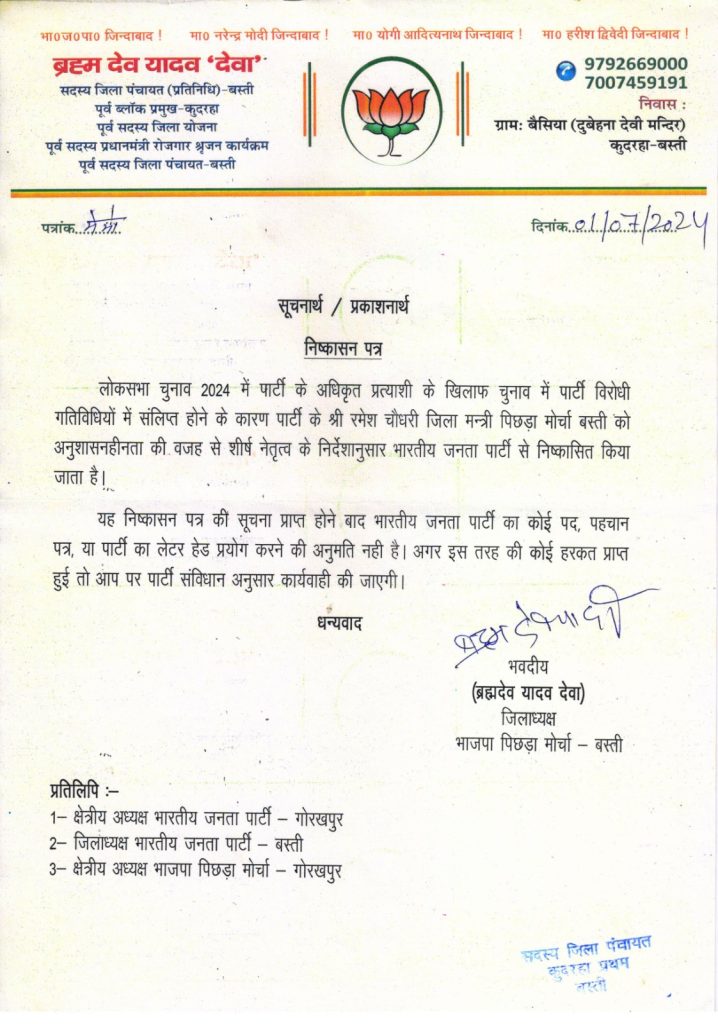 भा0ज0पा0 जिन्दाबाद !
मा0 नरेन्द्र मोदी जिन्दाबाद !
मा0 योगी आदित्यनाथ जिन्दाबाद !
मा0 हरीश द्विवेदी जिन्दाबाद !
ब्रह्म देव यादव ‘देवा’
सदस्य जिला पंचायत (प्रतिनिधि)-बस्ती
पूर्व ब्लॉक प्रमुख-कुदरहा
पूर्व सदस्य जिला योजना
पूर्व सदस्य प्रधानमंत्री रोजगार श्रृजन कार्यक्रम
पूर्व सदस्य जिला पंचायत-बस्ती
9792669000
7007459191
निवास :
ग्राम: बैसिया (दुबेहना देवी मन्दिर)
कुदरहा-बस्ती
पत्रांक
दिनांक 01/07/2024
सूचनार्थ / प्रकाशनार्थ
निष्कासन पत्र
लोकसभा चुनाव 2024 में पार्टी के अधिकृत प्रत्याशी के खिलाफ चुनाव में पार्टी विरोधी
गतिविधियों में संलिप्त होने के कारण पार्टी के श्री रमेश चौधरी जिला मन्त्री पिछड़ा मोर्चा बस्ती को
अनुशासनहीनता की वजह से शीर्ष नेतृत्व के निर्देशानुसार भारतीय जनता पार्टी से निष्कासित किया
जाता है।
यह निष्कासन पत्र की सूचना प्राप्त होने बाद भारतीय जनता पार्टी का कोई पद, पहचान
पत्र, या पार्टी का लेटर हेड प्रयोग करने की अनुमति नही है। अगर इस तरह की कोई हरकत प्राप्त
हुई तो आप पर पार्टी संविधान अनुसार कार्यवाही की जाएगी।
धन्यवाद
भवदीय
(ब्रह्मदेव यादव देवा)
जिलाध्यक्ष
भाजपा पिछड़ा मोर्चा – बस्ती
प्रतिलिपि :–
1– क्षेत्रीय अध्यक्ष भारतीय जनता पार्टी – गोरखपुर
2– जिलाध्यक्ष भारतीय जनता पार्टी – बस्ती
3– क्षेत्रीय अध्यक्ष भाजपा पिछड़ा मोर्चा – गोरखपुर
सदस्य जिला पंचायत
कुदरहा प्रथम
बस्ती